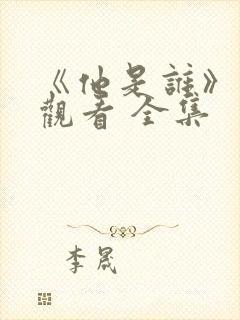 《他是誰》
觀看 全集
李晟